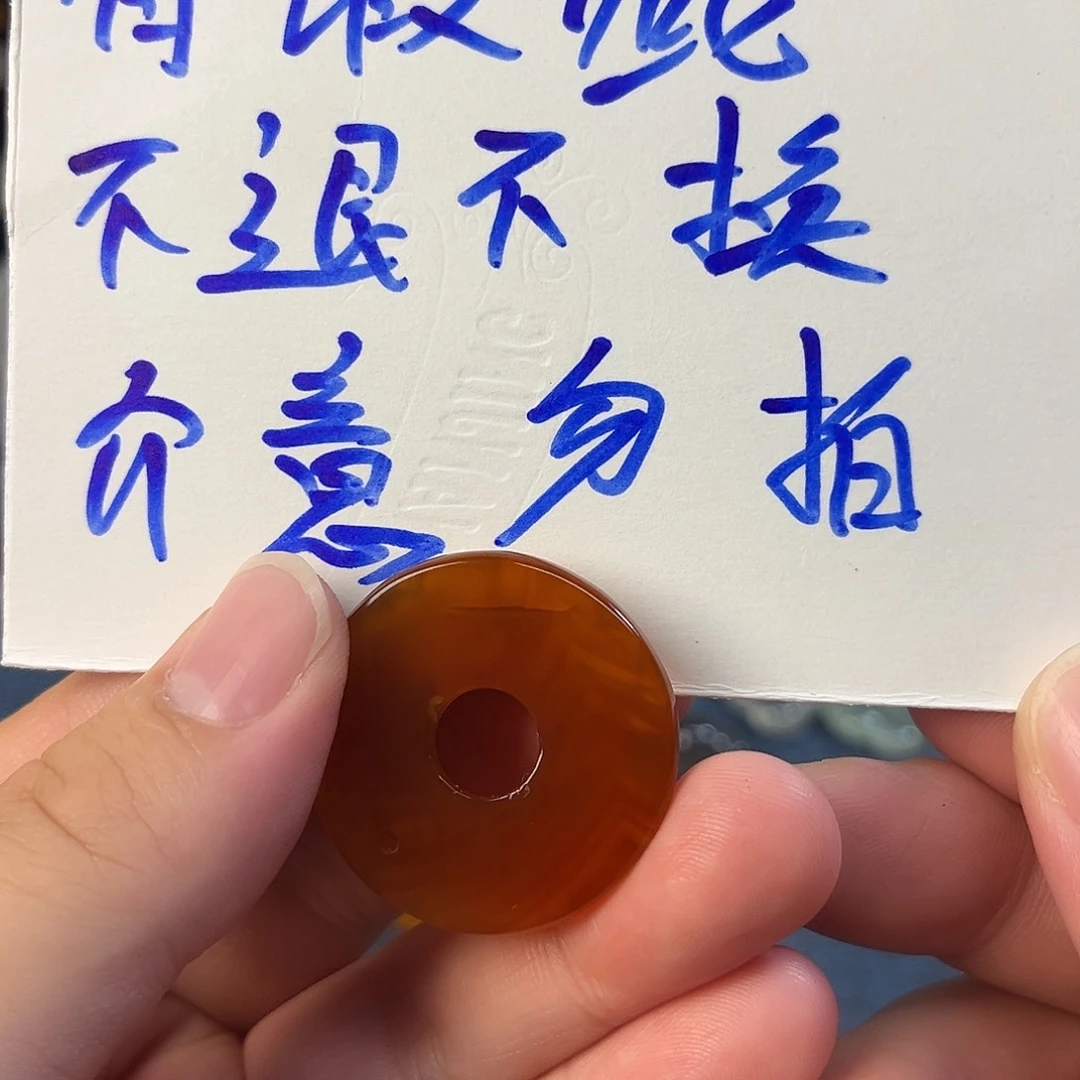 有瑕疵
不退不换
介意勿拍